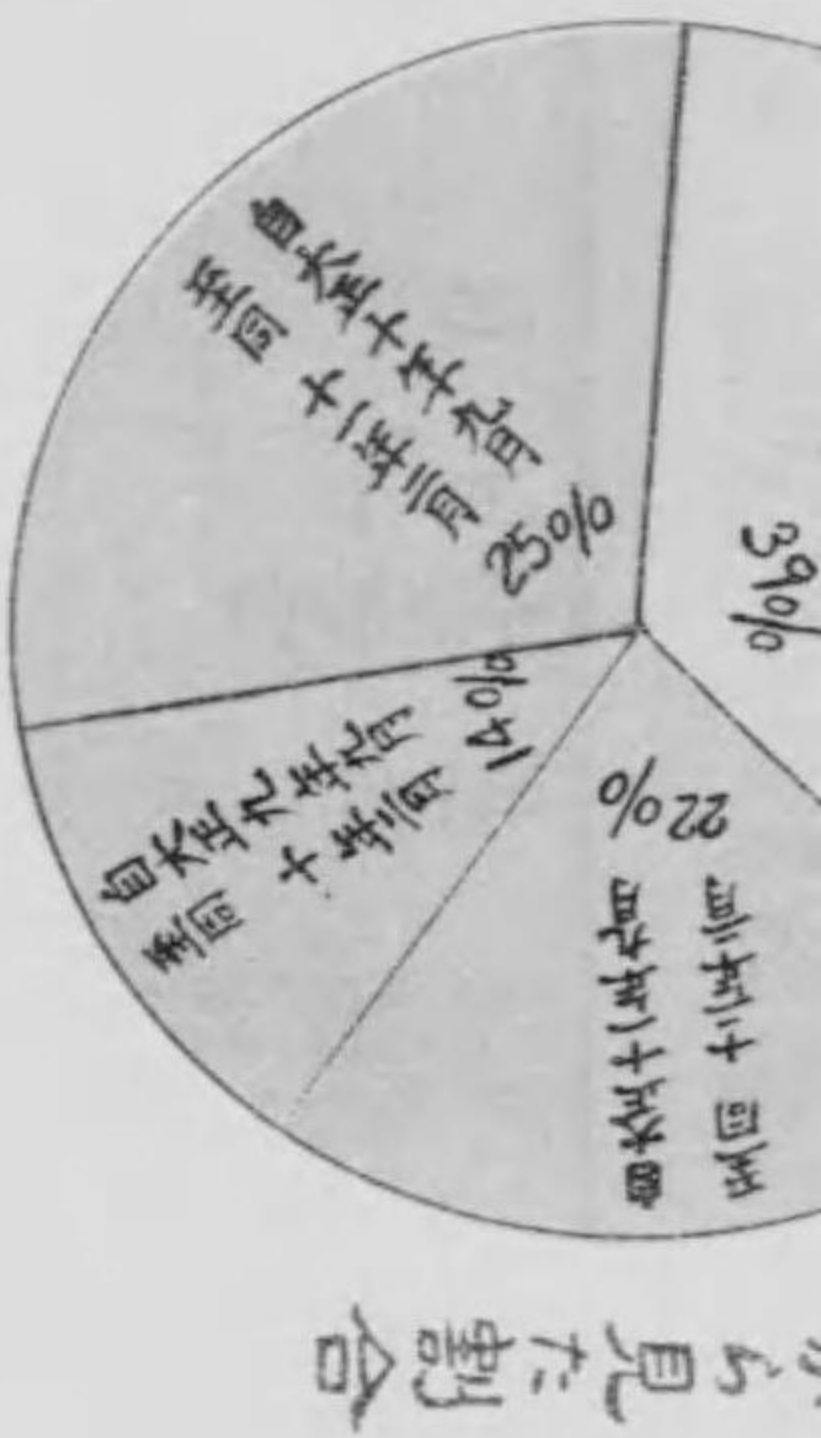 39%
自大正十年九月
至同 十一年三月
25%
自大正九年九月
至同 十年三月
14%
自大正十一年九月
至同 十二年三月
22%
ら見た割合